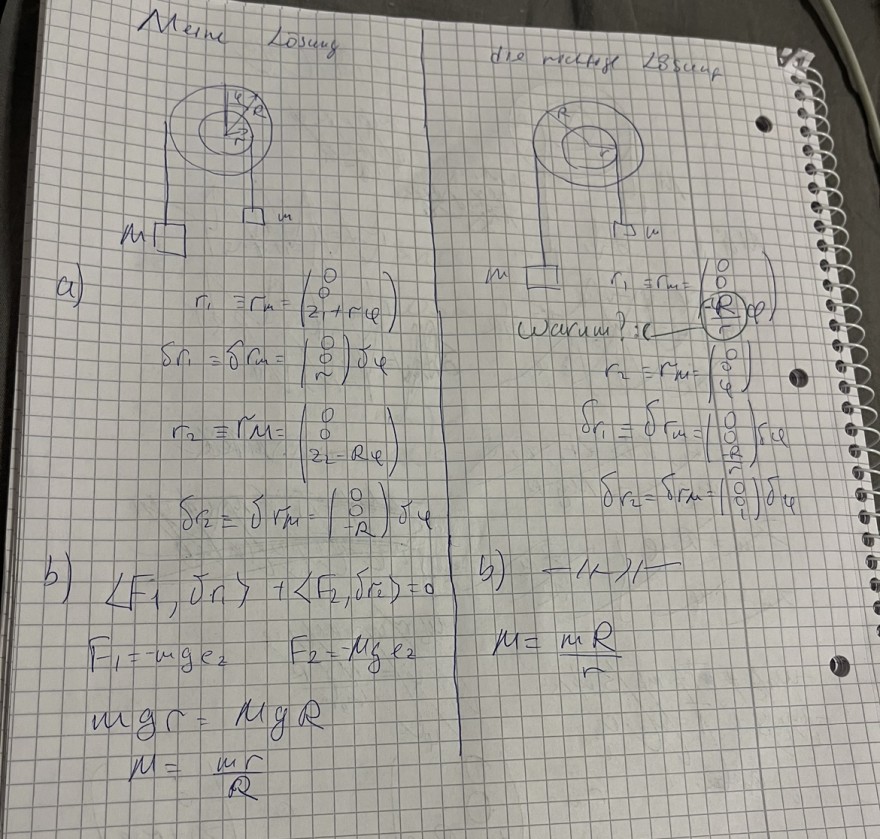 Meine Lösung
φ R
r
M
m
a)
r₁ ≡ r_m = (0 0 z₁ + rφ)
δr₁ = δr_m = (0 0 r) δφ
r₂ ≡ r_M = (0 0 z₂ - Rφ)
δr₂ = δr_m = (0 0 -R) δφ
b)
⟨F₁, δr₁⟩ + ⟨F₂, δr₂⟩ = 0
F₁ = -mg e_z F₂ = -Mg e_z
mgr = MgR
M = mr/R
die richtige Lösung
R
r
M
m
r₁ ≡ r_m = (0 0 -R/r φ)
Warum? :(
r₂ ≡ r_M = (0 0 φ)
δr₁ = δr_m = (0 0 -R/r) δφ
δr₂ = δr_M = (0 0 1) δφ
b) —〃—
M = mR/r